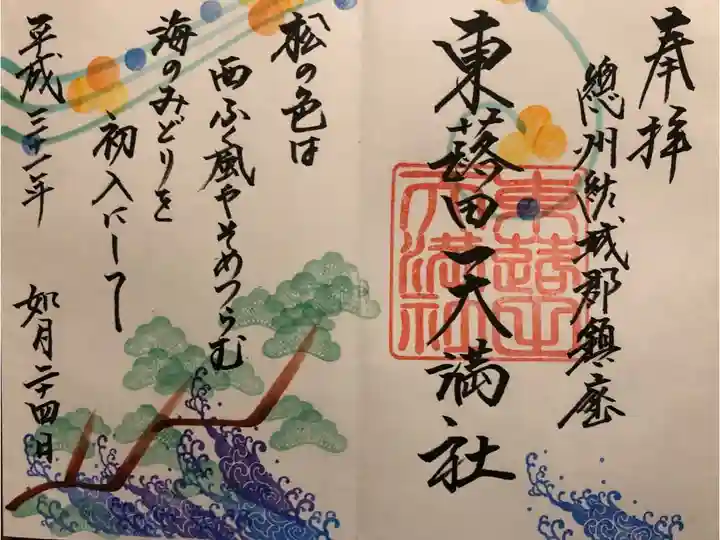 奉拝
總州結城郡鎮座
東蕗田天満社
東蕗田天満社
松の色は
西ふく風やそめつらむ
海のみどりを
初入にして
平成三十一年
如月二十四日